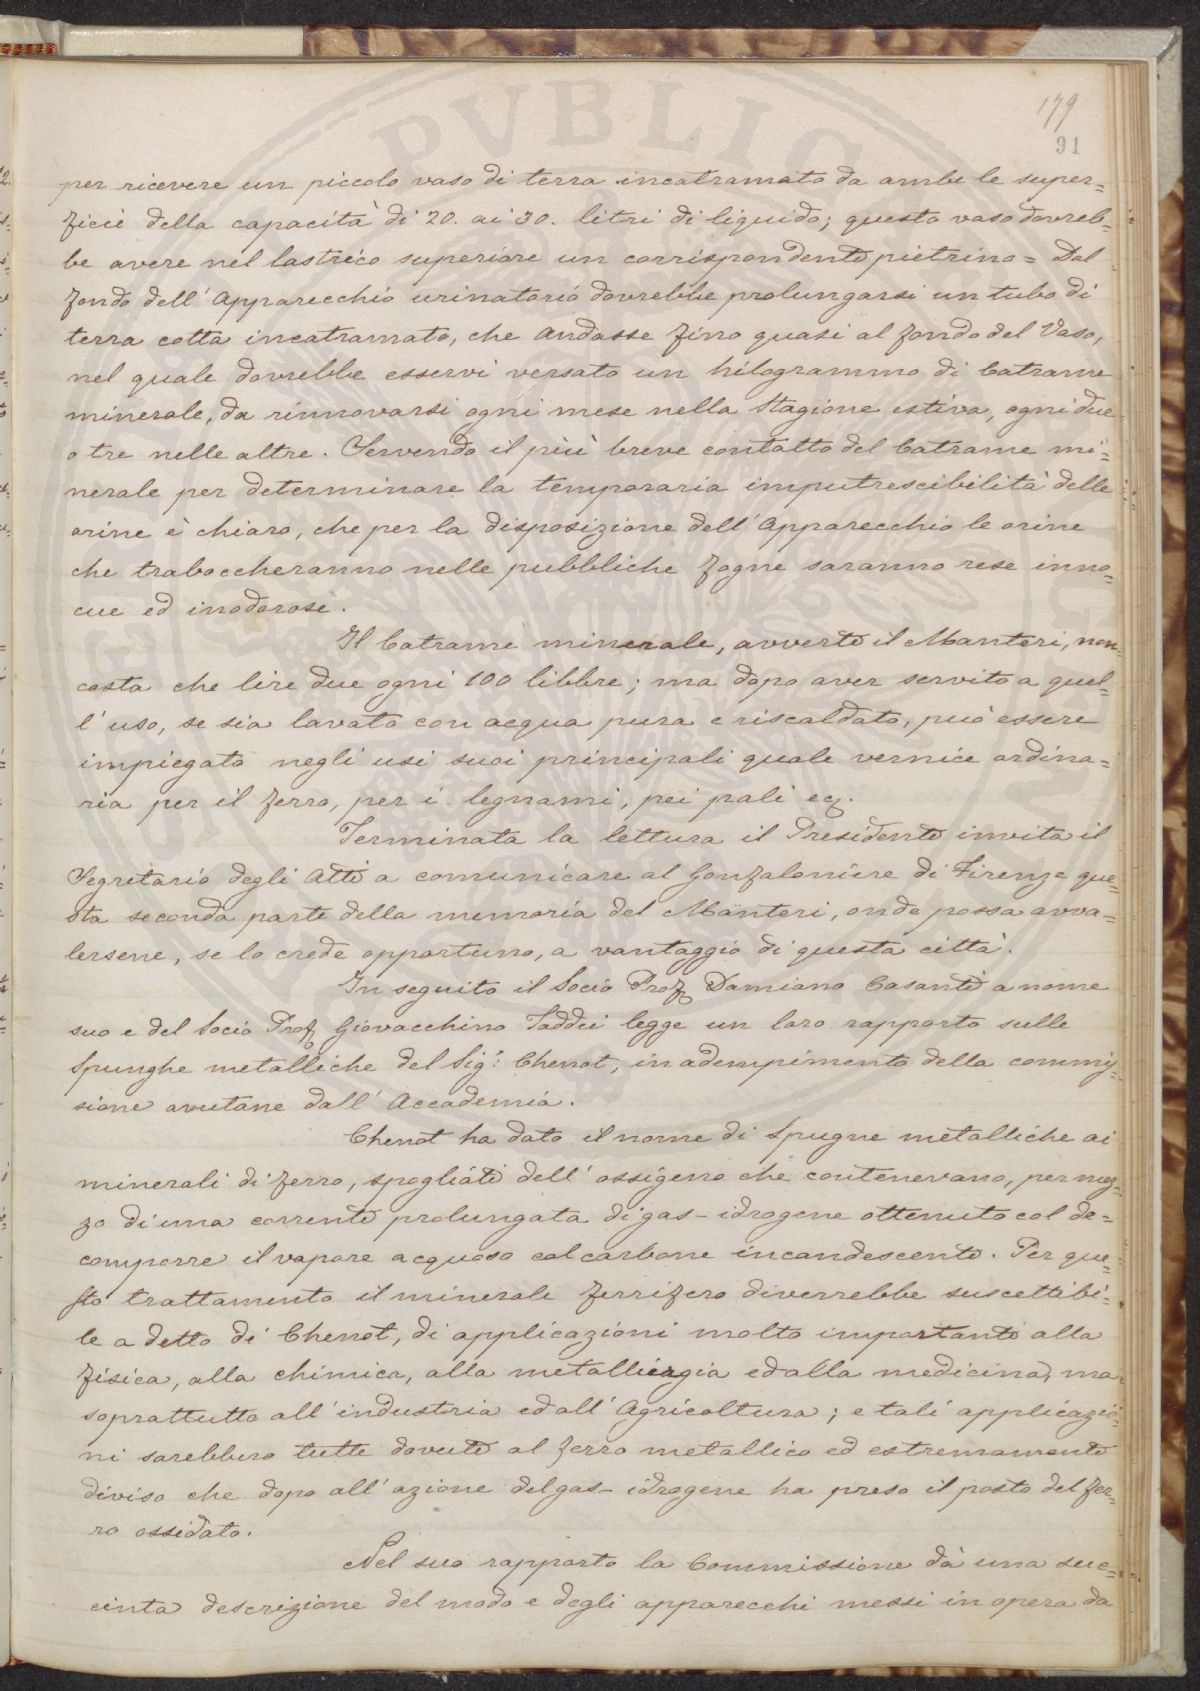 179
91
per ricevere un piccolo vaso di terra incatramato da ambe le super=
ficie della capacità di 20. ai 30. litri di liquido; questo vaso dovreb=
be avere nel lastrico superiore un corrispondente pietrino = Dal
fondo dell' Apparecchio urinatorio dovrebbe prolungarsi un tubo di
terra cotta incatramato, che andasse fino quasi al fondo del Vaso,
nel quale dovrebbe esservi versato un kilogrammo di Catrame
minerale, da rinnovarsi ogni mese nella Stagione estiva, ogni due
o tre nelle altre. Servendo il più breve contatto del Catrame mi=
nerale per determinare la temporaria imputrescibilità delle
orine è chiaro, che per la disposizione dell' Apparecchio le orine
che traboccheranno nelle pubbliche fogne saranno rese inno=
cue ed inodorose.
Il Catrame minerale, avverte il Manteri, non
costa che lire due ogni 100 libbre; ma dopo aver servito a quel=
l' uso, se sia lavato con acqua pura e riscaldato, può essere
impiegato negli usi suoi principali quale vernice ordina=
ria per il ferro, per i legnami, pei pali ec.
Terminata la lettura il Presidente invita il
Segretario degli Atti a comunicare al Gonfaloniere di Firenze que=
sta seconda parte della memoria del Manteri, onde possa avva=
lersene, se lo crede opportuno, a vantaggio di questa città.
In seguito il Socio Prof. Damiano Casanti a nome
suo e del Socio Prof. Giovacchino Taddei legge un loro rapporto sulle
Spunghe metalliche del Sig.r Chenot, in adempimento della commis=
sione avutane dall' Accademia.
Chenot ha dato il nome di Spugne metalliche ai
minerali di ferro, spogliati dell' ossigeno che contenevano, per mez=
zo di una corrente prolungata di gas-idrogene ottenuto col de=
comporre il vapore acquoso col carbone incandescente. Per que=
sto trattamento il minerale ferrifero diverrebbe suscettibi=
le a detto di Chenot, di applicazioni molto importanti alla
fisica, alla chimica, alla metallurgia ed alla medicina, ma
soprattutto all' industria ed all' Agricoltura; e tali applicazio=
ni sarebbero tutte dovute al ferro metallico ed estremamente
diviso che dopo all' azione del gas-idrogene ha preso il posto del fer=
ro ossidato.
Nel suo rapporto la Commissione dà una suc=
cinta descrizione del modo e degli apparecchi messi in opera da